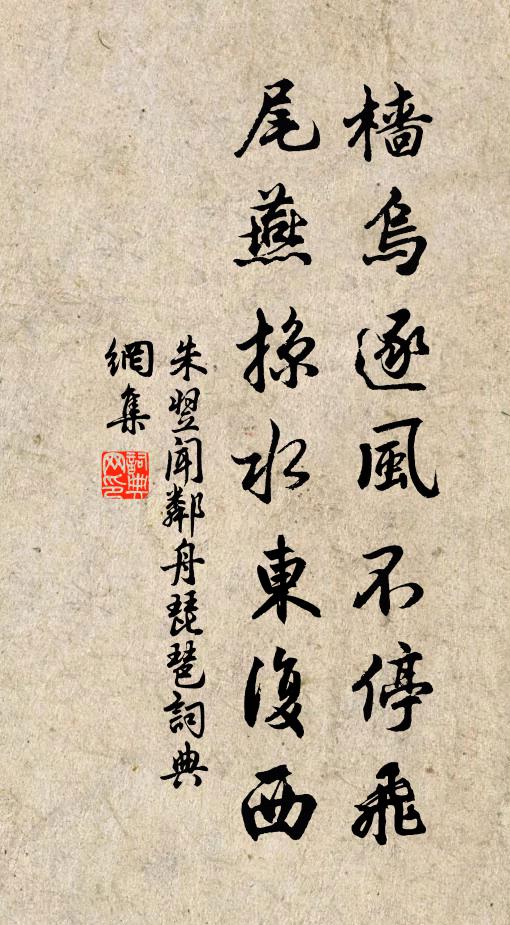 檣烏逐風不停飛
尾燕掠水東復西
朱翌聞鄰舟琵琶詞典
網集
詞典
网印